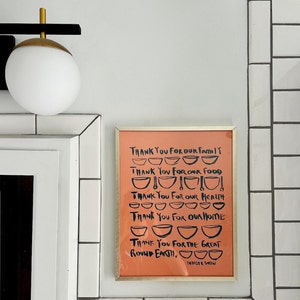 THANK YOU FOR OUR FAMILY
THANK YOU FOR OUR FOOD
THANK YOU FOR OUR HEALTH
THANK YOU FOR OUR HOME
THANK YOU FOR THE GREAT
ROUND EARTH.